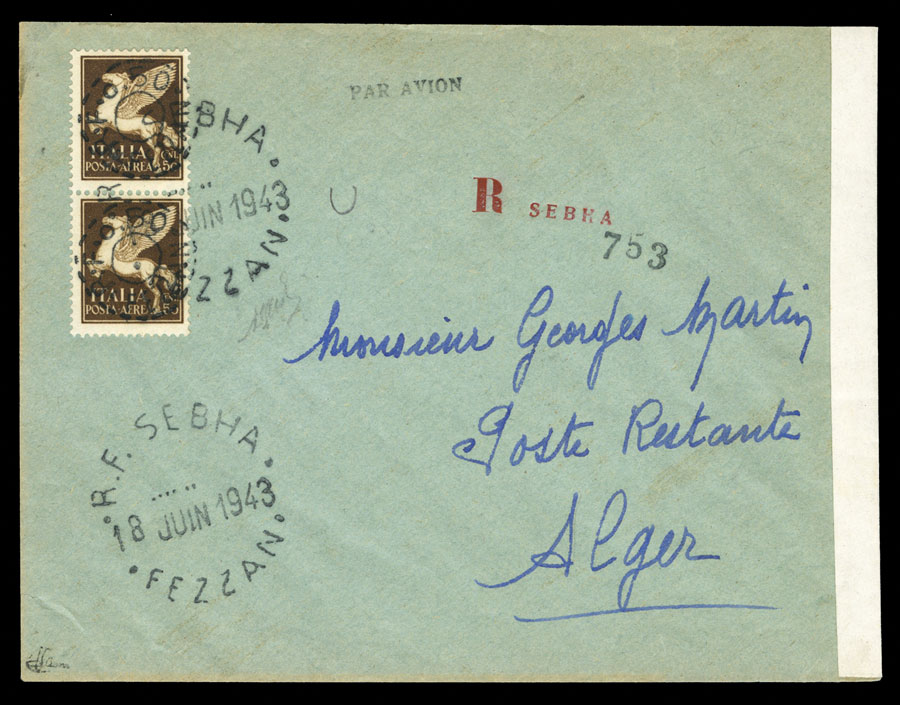 PAR AVION
SEBHA
JUIN 1943
FEZZAN
ITALIA
POSTA-AEREA 50
ITALIA
POSTA-AEREA 50
R SEBHA
753
Monsieur Georges Martin
Poste Restante
Alger
R.F. SEBHA
18 JUIN 1943
FEZZAN